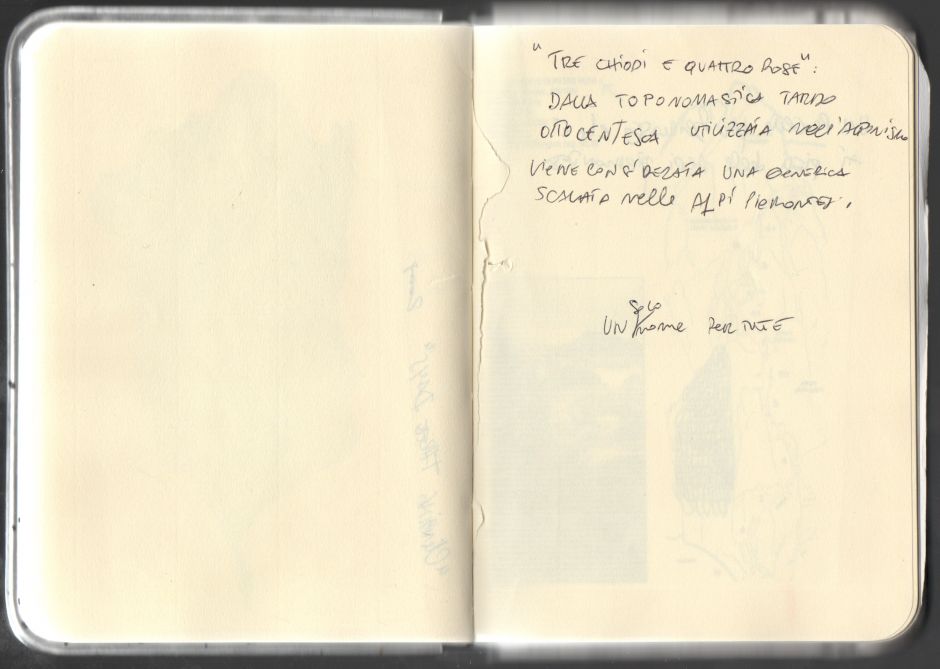 "TRE CHIODI E QUATTRO ROSE":
DALLA TOPONOMASTICA TARDO
OTTOCENTESCA UTILIZZATA NELL'ALPINISMO
VIENE CONSIDERATA UNA GENERICA
SCALATA nelle ALPI PIEMONTESI.
SOLO
UN nome PER TUTTE